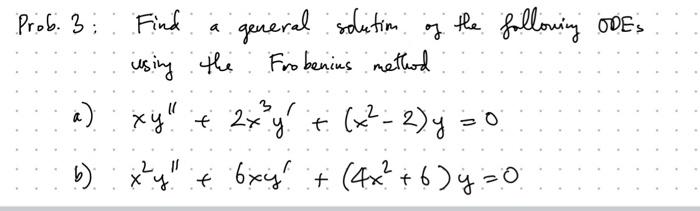 Prob. 3: Find a general solution of the following ODEs
using the Frobenius method
a) xy'' + 2x³y' + (x² - 2)y = 0
b) x²y'' + 6xy' + (4x² + 6)y = 0